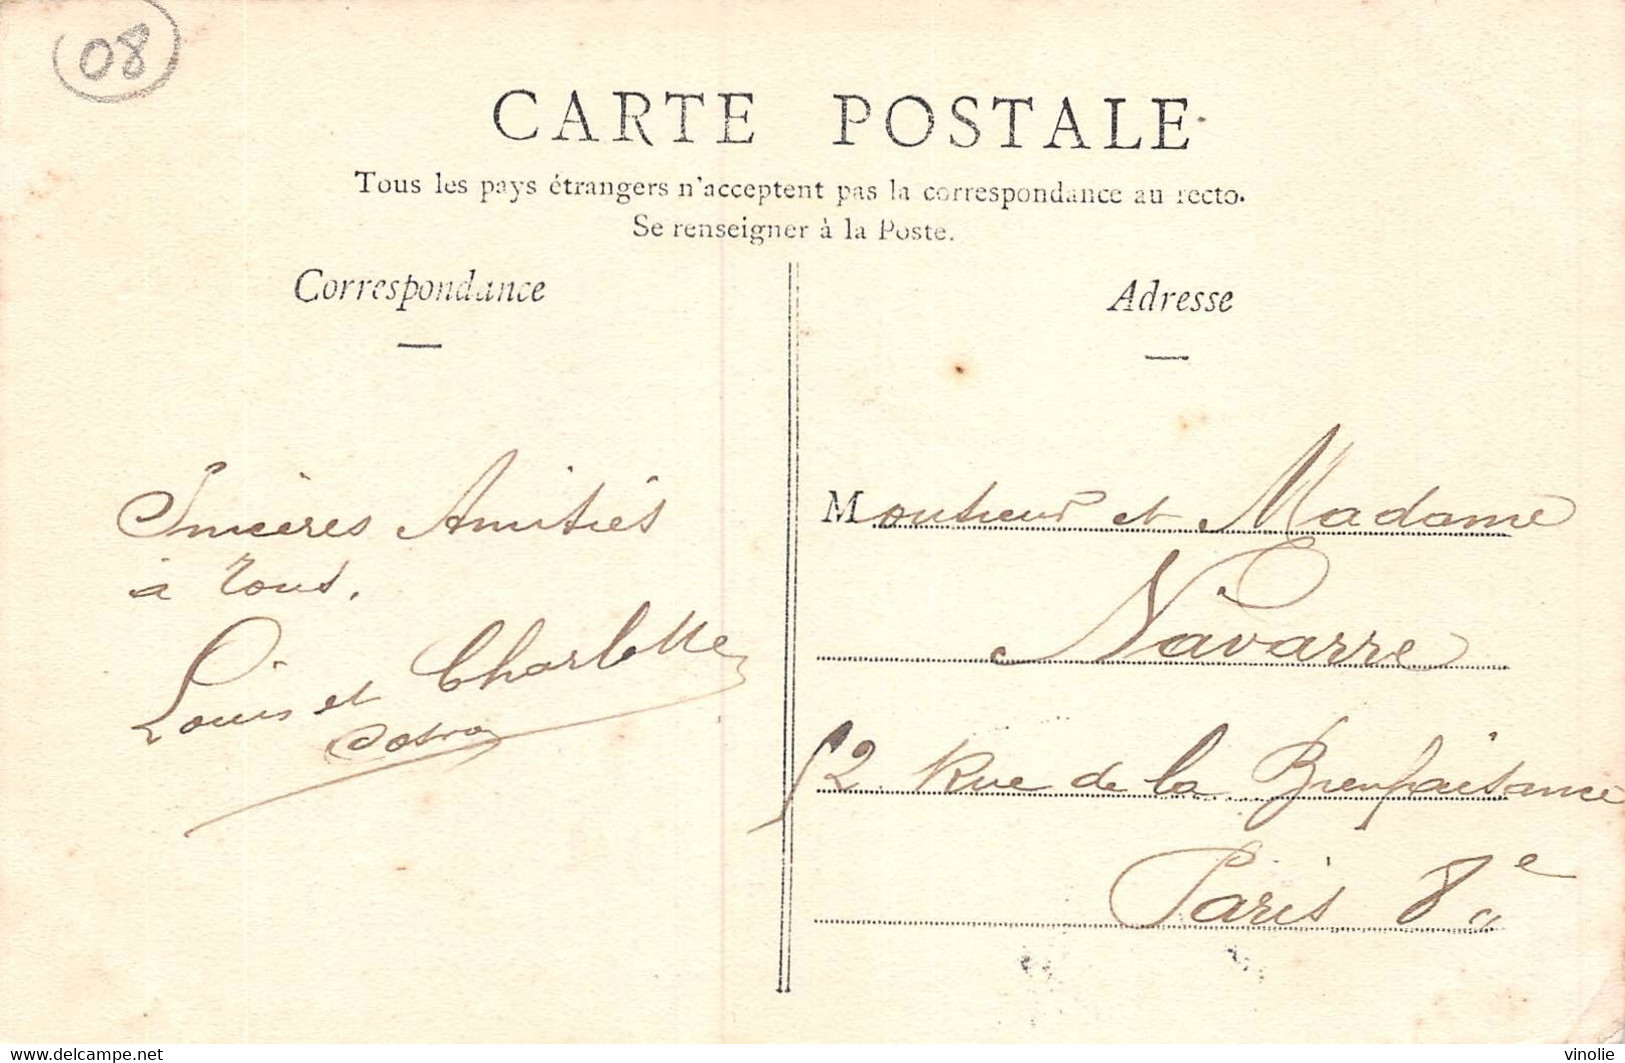 08
CARTE POSTALE
Tous les pays étrangers n'acceptent pas la correspondance au recto.
Se renseigner à la Poste.
Correspondance
Sincères Amitiés
à Tous.
Louis et Charlotte
Adresse
Monsieur et Madame
Navarre
52 Rue de la Bienfaisance
Paris 8e
www.delcampe.net
vinolie